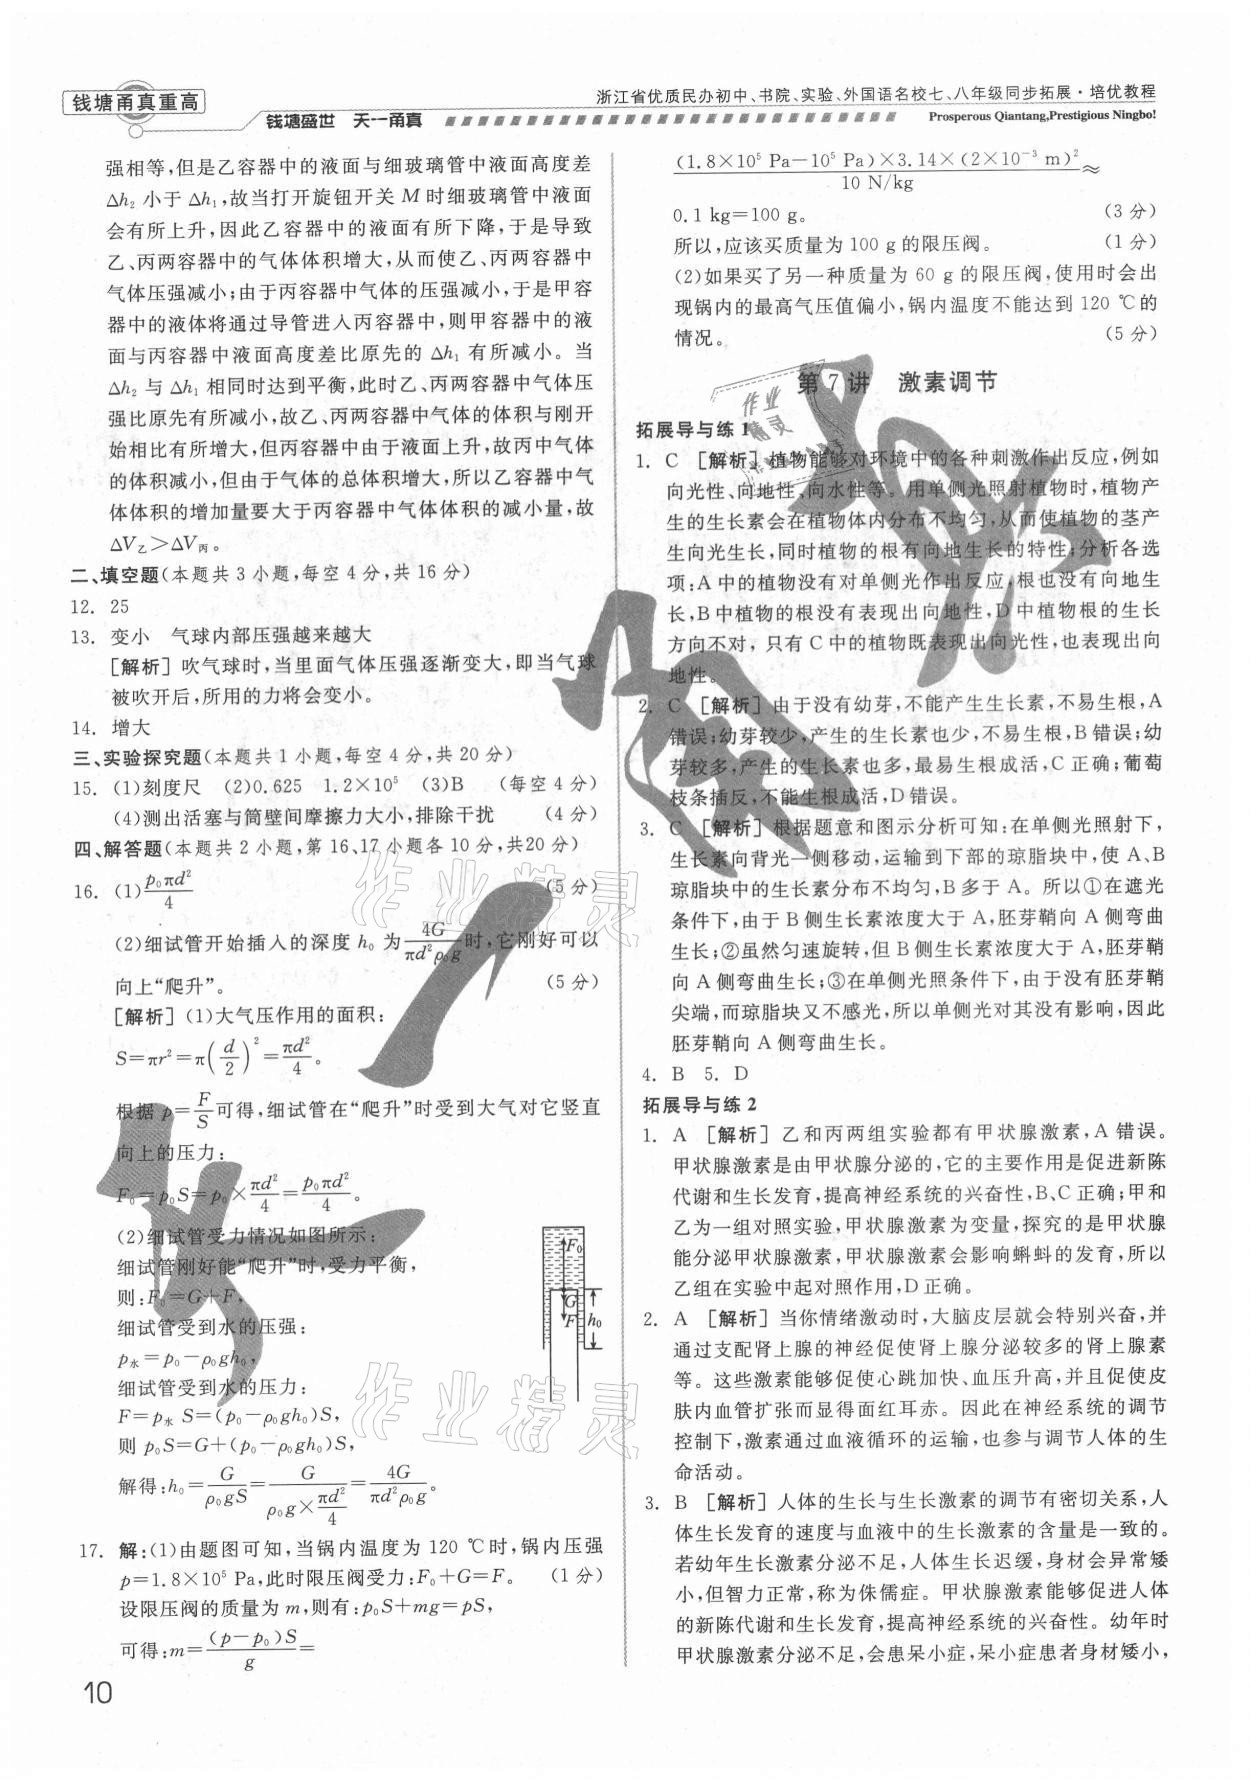 钱塘甬真重高
浙江省优质民办初中、书院、实验、外国语名校七、八年级同步拓展·培优教程
钱塘盛世 天一甬真
Prosperous Qiantang,Prestigious Ningbo!
强相等,但是乙容器中的液面与细玻璃管中液面高度差
Δh₂ 小于 Δh₁,故当打开旋钮开关 M 时细玻璃管中液面
会有所上升,因此乙容器中的液面有所下降,于是导致
乙、丙两容器中的气体体积增大,从而使乙、丙两容器中
气体压强减小;由于丙容器中气体的压强减小,于是甲容
器中的液体将通过导管进入丙容器中,则甲容器中的液
面与丙容器中液面高度差比原先的 Δh₁ 有所减小。当
Δh₂ 与 Δh₁ 相同时达到平衡,此时乙、丙两容器中气体压
强比原先有所减小,故乙、丙两容器中气体的体积与刚开
始相比有所增大,但丙容器中由于液面上升,故丙中气体
的体积减小,但由于气体的总体积增大,所以乙容器中气
体体积的增加量要大于丙容器中气体体积的减小量,故
ΔV乙>ΔV丙。
二、填空题(本题共 3 小题,每空 4 分,共 16 分)
12. 25
13. 变小 气球内部压强越来越大
[解析] 吹气球时,当里面气体压强逐渐变大,即当气球
被吹开后,所用的力将会变小。
14. 增大
三、实验探究题(本题共 1 小题,每空 4 分,共 20 分)
15. (1)刻度尺 (2)0.625 1.2×10⁵ (3)B (每空 4 分)
(4)测出活塞与筒壁间摩擦力大小,排除干扰 (4 分)
四、解答题(本题共 2 小题,第 16、17 小题各 10 分,共20 分)
16. (1)p₀πd²/4 (5 分)
(2)细试管开始插入的深度 h₀ 为4G/πd²ρ₀g时,它刚好可以
向上“爬升”。 (5 分)
[解析] (1)大气压作用的面积:
S=πr²=π(d/2)²=πd²/4。
根据 p=F/S可得,细试管在“爬升”时受到大气对它竖直
向上的压力:
F₀=p₀S=p₀×πd²/4=p₀πd²/4。
(2)细试管受力情况如图所示:
细试管刚好能“爬升”时,受力平衡,
则:F₀=G+F,
细试管受到水的压强:
p水=p₀-ρ₀gh₀,
细试管受到水的压力:
F=p水 S=(p₀-ρ₀gh₀)S,
则 p₀S=G+(p₀-ρ₀gh₀)S,
解得:h₀=G/ρ₀gS=G/(ρ₀g×πd²/4)=4G/πd²ρ₀g。
F₀
G
F
h₀
17. 解:(1)由题图可知,当锅内温度为 120 ℃时,锅内压强
p=1.8×10⁵ Pa,此时限压阀受力:F₀+G=F。 (1 分)
设限压阀的质量为 m,则有:p₀S+mg=pS,
可得:m=(p-p₀)S/g=
10
(1.8×10⁵ Pa-10⁵ Pa)×3.14×(2×10⁻³ m)²/10 N/kg≈
0.1 kg=100 g。 (3 分)
所以,应该买质量为 100 g 的限压阀。 (1 分)
(2)如果买了另一种质量为 60 g 的限压阀,使用时会出
现锅内的最高气压值偏小,锅内温度不能达到 120 ℃的
情况。 (5 分)
第 7 讲 激素调节
拓展导与练 1
1. C [解析] 植物能够对环境中的各种刺激作出反应,例如
向光性、向地性、向水性等。用单侧光照射植物时,植物产
生的生长素会在植物体内分布不均匀,从而使植物的茎产
生向光生长,同时植物的根有向地生长的特性;分析各选
项:A 中的植物没有对单侧光作出反应,根也没有向地生
长,B 中植物的根没有表现出向地性,D 中植物根的生长
方向不对,只有 C 中的植物既表现出向光性,也表现出向
地性。
2. C [解析] 由于没有幼芽,不能产生生长素,不易生根,A
错误;幼芽较少,产生的生长素也少,不易生根,B 错误;幼
芽较多,产生的生长素也多,最易生根成活,C 正确;葡萄
枝条插反,不能生根成活,D 错误。
3. C [解析] 根据题意和图示分析可知:在单侧光照射下,
生长素向背光一侧移动,运输到下部的琼脂块中,使 A、B
琼脂块中的生长素分布不均匀,B 多于 A。所以①在遮光
条件下,由于 B 侧生长素浓度大于 A,胚芽鞘向 A 侧弯曲
生长;②虽然匀速旋转,但 B 侧生长素浓度大于 A,胚芽鞘
向 A 侧弯曲生长;③在单侧光照条件下,由于没有胚芽鞘
尖端,而琼脂块又不感光,所以单侧光对其没有影响,因此
胚芽鞘向 A 侧弯曲生长。
4. B 5. D
拓展导与练 2
1. A [解析] 乙和丙两组实验都有甲状腺激素,A 错误。
甲状腺激素是由甲状腺分泌的,它的主要作用是促进新陈
代谢和生长发育,提高神经系统的兴奋性,B、C 正确;甲和
乙为一组对照实验,甲状腺激素为变量,探究的是甲状腺
能分泌甲状腺激素,甲状腺激素会影响蝌蚪的发育,所以
乙组在实验中起对照作用,D 正确。
2. A [解析] 当你情绪激动时,大脑皮层就会特别兴奋,并
通过支配肾上腺的神经促使肾上腺分泌较多的肾上腺素
等。这些激素能够促使心跳加快、血压升高,并且促使皮
肤内血管扩张而显得面红耳赤。因此在神经系统的调节
控制下,激素通过血液循环的运输,也参与调节人体的生
命活动。
3. B [解析] 人体的生长与生长激素的调节有密切关系,人
体生长发育的速度与血液中的生长激素的含量是一致的。
若幼年生长激素分泌不足,人体生长迟缓,身材会异常矮
小,但智力正常,称为侏儒症。甲状腺激素能够促进人体
的新陈代谢和生长发育,提高神经系统的兴奋性。幼年时
甲状腺激素分泌不足,会患呆小症,呆小症患者身材矮小,
作业精灵
作业精灵
作业精灵